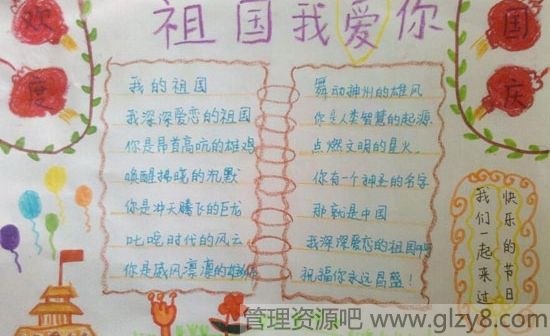 祖国我爱你
欢度
国庆
我的祖国
我深深爱恋的祖国
你是昂首高吭的雄鸡
唤醒拂晓的沉默
你是冲天腾飞的巨龙
叱咤时代的风云
你是威风凛凛的雄狮
舞动神州的雄风
你是人类智慧的起源
点燃文明的星火.
你有一个神圣的名字
那就是中国
我深深爱恋的祖国啊
祝福你永远昌盛!
快乐的节日
我们一起来过
管理资源吧 www.glzy8.com